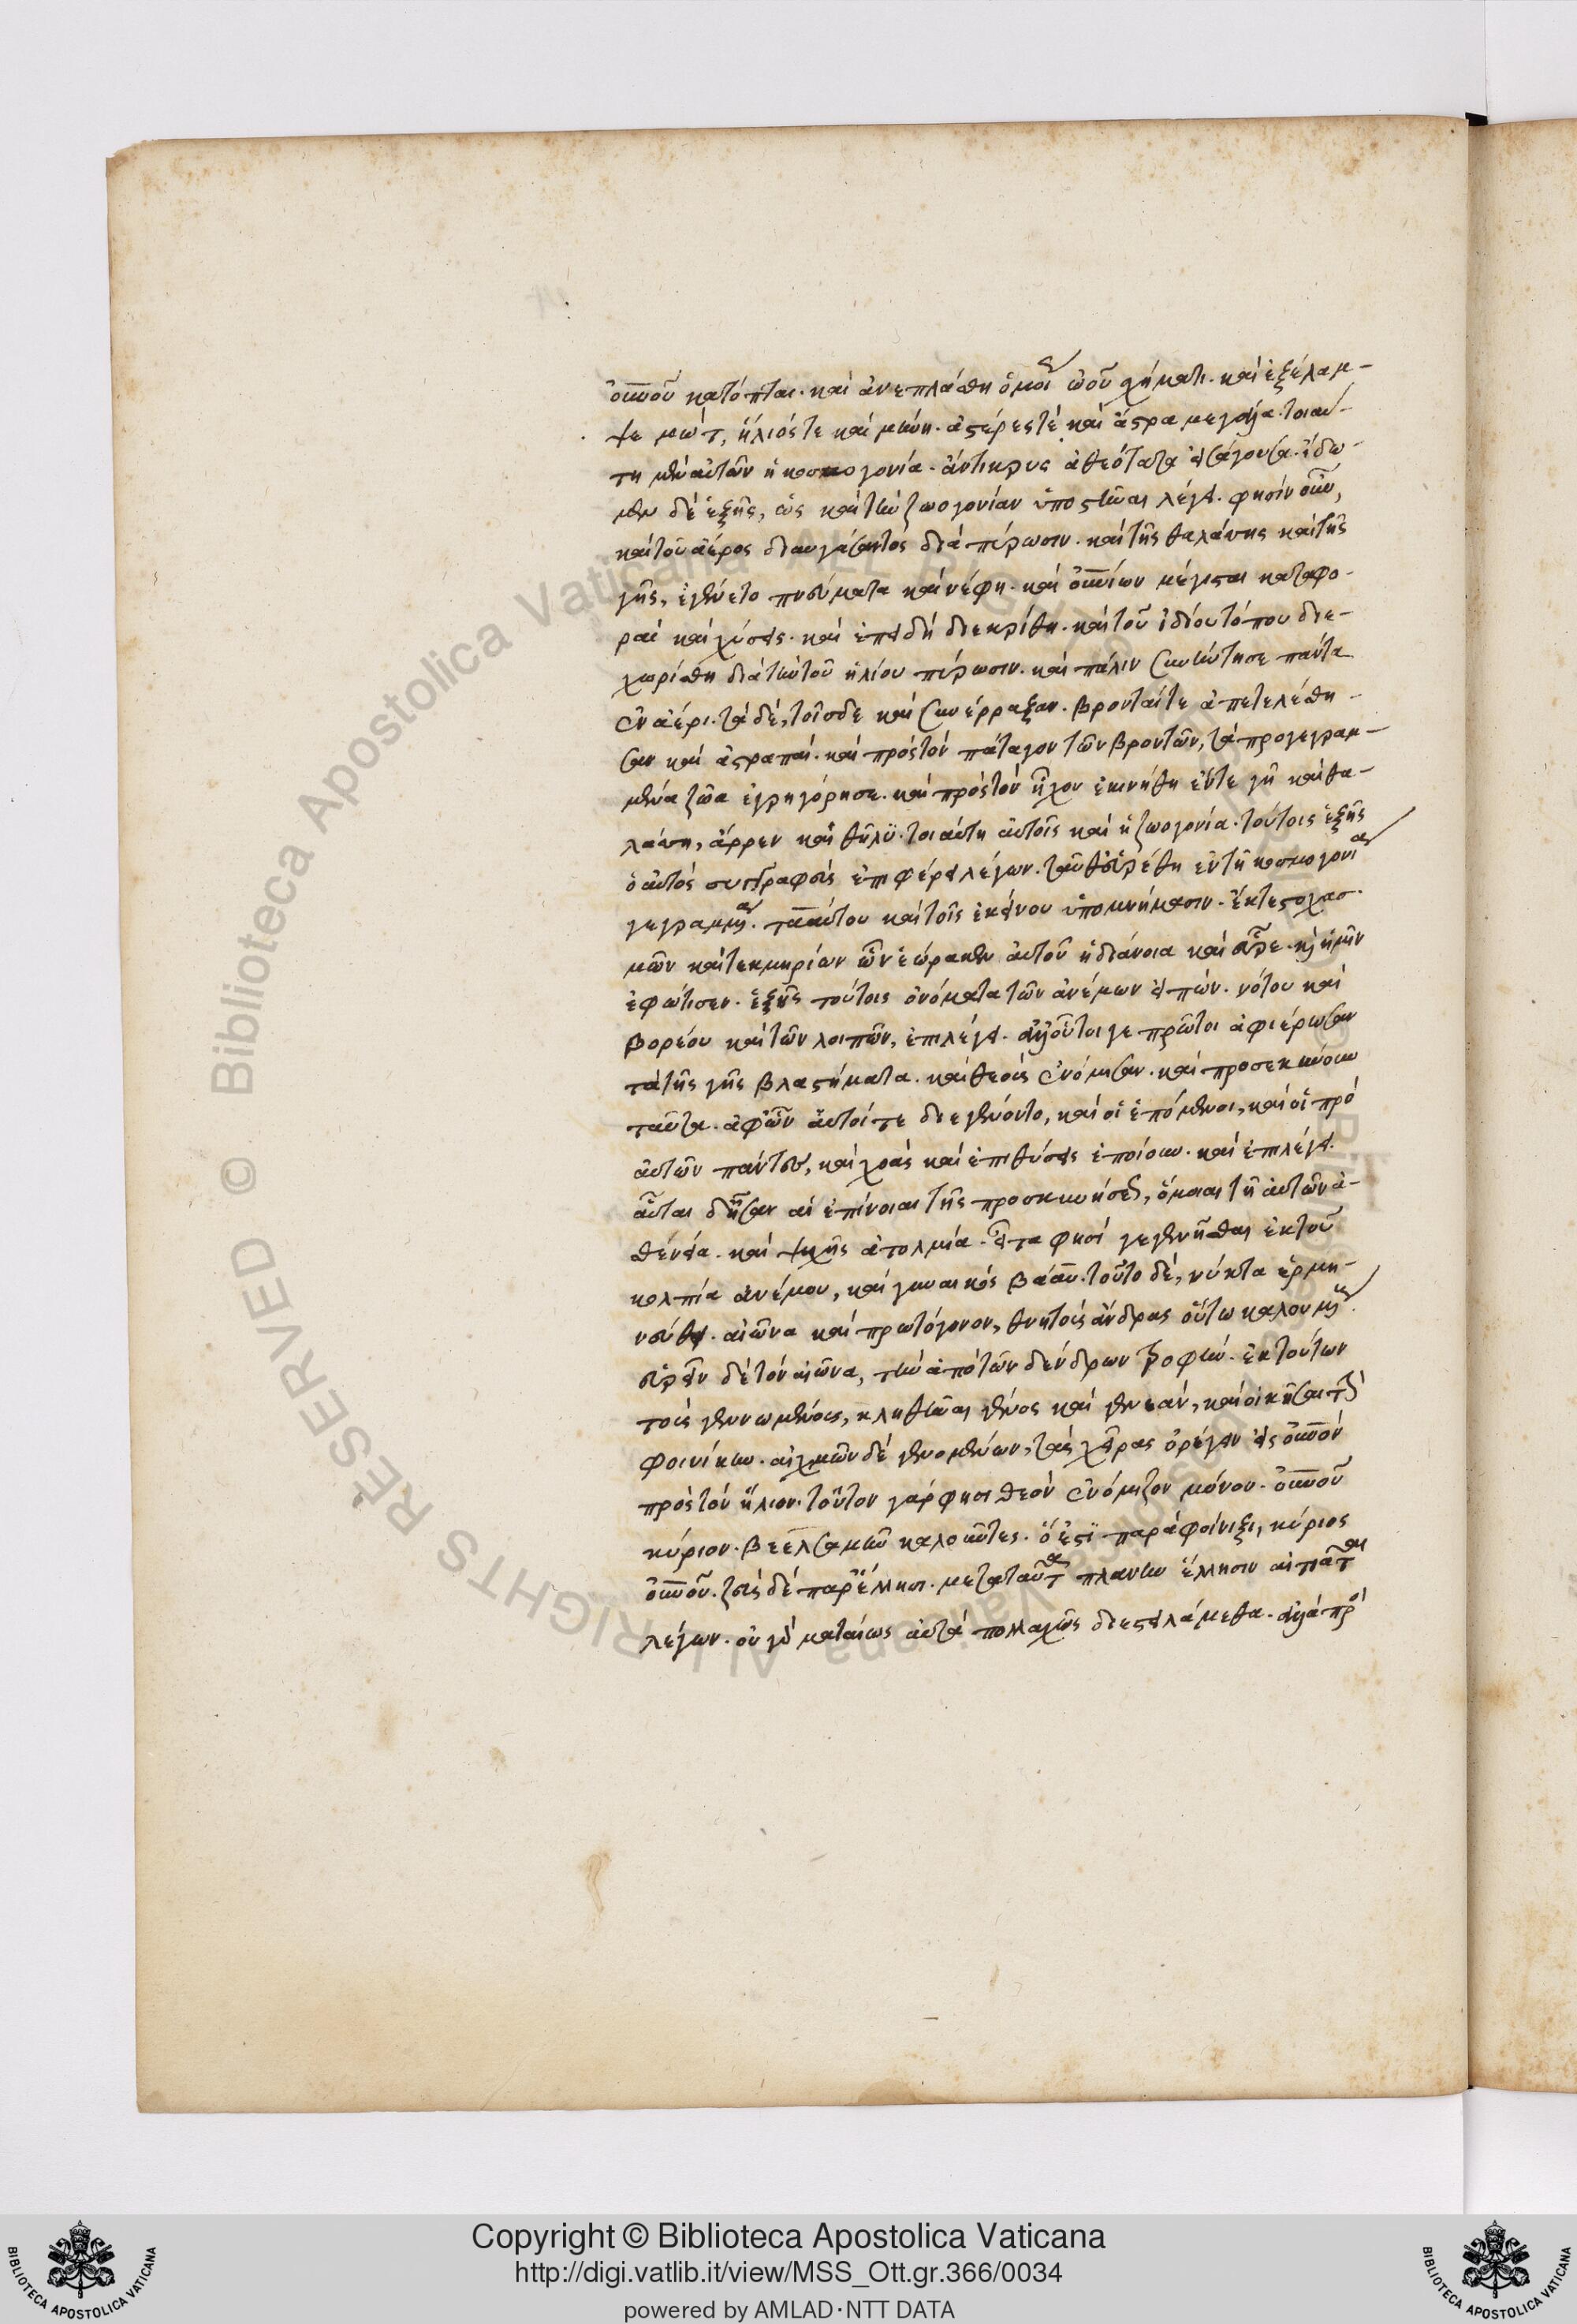 οὐνοῦ κατόπται. καὶ ἀνεπλάσθη ὁμοί ὠοῦ χήματι. καὶ ἐξέλαμ-
ψε μὼτ, ἥλιός τε καὶ μήνη. ἀστέρες τὲ καὶ ἄστρα μεγάλα. τοιαύ-
τη μὲν αὐτῶν ἡ κοσμογονία. ἄντικρυς ἀθεότητα εἰσάγουσα. ἴδω-
μεν δὲ ἑξῆς, ὡς καὶ τὴν ζωογονίαν ὑποστῆναι λέγει. φησὶν οὖν,
καὶ τοῦ ἀέρος διαυγάσαντος διὰ πύρωσιν. καὶ τῆς θαλάττης καὶ τῆς
γῆς, ἐγένετο πνεύματα καὶ νέφη. καὶ οὐνίων μέγισται καταφο-
ραὶ καὶ χύσεις. καὶ ἐπειδὴ διεκρίθη. καὶ τοῦ ἰδίου τόπου διε-
χωρίσθη διὰ τὴν τοῦ ἡλίου πύρωσιν. καὶ πάλιν συνήντησε πάντα
ἐν ἀέρι. τὰ δὲ, τοῖσδε καὶ συνέρραξαν. βρονταί τε ἀπετελέσθη-
σαν καὶ ἀστραπαί. καὶ πρὸς τὸν πάταγον τῶν βροντῶν, τὰ προγεγραμ-
μένα ζῶα ἐγρηγόρησε. καὶ πρὸς τὸν ἦχον ἐκινήθη ἔν τε γῆ καὶ θα-
λάττη, ἄρρεν καὶ θῆλϋ. τοιαύτη αὐτοῖς καὶ ἡ ζωογονία. τούτοις ἑξῆς
ὁ αὐτὸς συγγραφεὺς ἐπιφέρει λέγων. ταῦθ εὑρέθη ἐν τῆ κοσμογονία
γεγραμμένα. τααύτου καὶ τοῖς ἐκείνου ὑπομνήμασιν. ἔκ τε στοχασ-
μῶν καὶ τεκμηρίων ὧν ἑώρακεν αὐτοῦ ἡ διάνοια καὶ εὗρε. καὶ ἡμῖν
ἐφώτισεν. ἑξῆς τούτοις ὀνόματα τῶν ἀνέμων εἰπών. νότου καὶ
βορέου καὶ τῶν λοιπῶν, ἐπιλέγει. ἀλλ οὗτοι γε πρῶτοι ἀφιέρωσαν
τὰ τῆς γῆς βλαστήματα. καὶ θεοὺς ἐνόμισαν. καὶ προσεκύνουν
ταῦτα. ἀφὧν αὐτοί τε διεγένοντο, καὶ οἱ ἑπόμενοι, καὶ οἱ πρὸ
αὐτῶν πάντες, καὶ χοὰς καὶ ἐπιθύσεις ἐποίουν. καὶ ἐπιλέγει.
αὗται δἦσαν αἱ ἐπίνοιαι τῆς προσκυνήσεως, ὅμοιαι τῆ αὐτῶν ἀ-
σθενεία. καὶ ψυχῆς ἀτολμία. εἶτα φησὶ γεγενῆσθαι ἐκ τοῦ
κολπία ἀνέμου, καὶ γυναικὸς βάαυ. τοῦτο δὲ, νύκτα ἑρμη-
νεύει. αἰῶνα καὶ πρωτόγονον, θνητοὺς ἄνδρας οὕτω καλουμένους.
εὑρεῖν δὲ τὸν αἰῶνα, τὴν ἀπὸ τῶν δένδρων τροφήν. ἐκ τούτων
τοὺς γεννωμένους, κληθῆναι γένος καὶ γενεάν, καὶ οἰκῆσαι τὴν
φοινίκην. αὐχμῶν δὲ γενομένων, τὰς χεῖρας ὀρέγειν εἰς οὐνὸν
πρὸς τὸν ἥλιον. τοῦτον γάρ φησι θεὸν ἐνόμιζον μόνον. οὐνοῦ
κύριον. βεελσαμὴν καλοῦντες. ὅ ἐστϊ παρὰ φοίνιξι, κύριος
οὐνοῦ. ζεὺς δὲ παρ ἕλλησι. μετὰ ταῦτα πλάνην ἕλλησιν αἰτιᾶται
λέγων. οὐ γὰρ ματαίως αὐτὰ πολλαχῶς διεστειλάμεθα. ἀλλὰ πρὸ